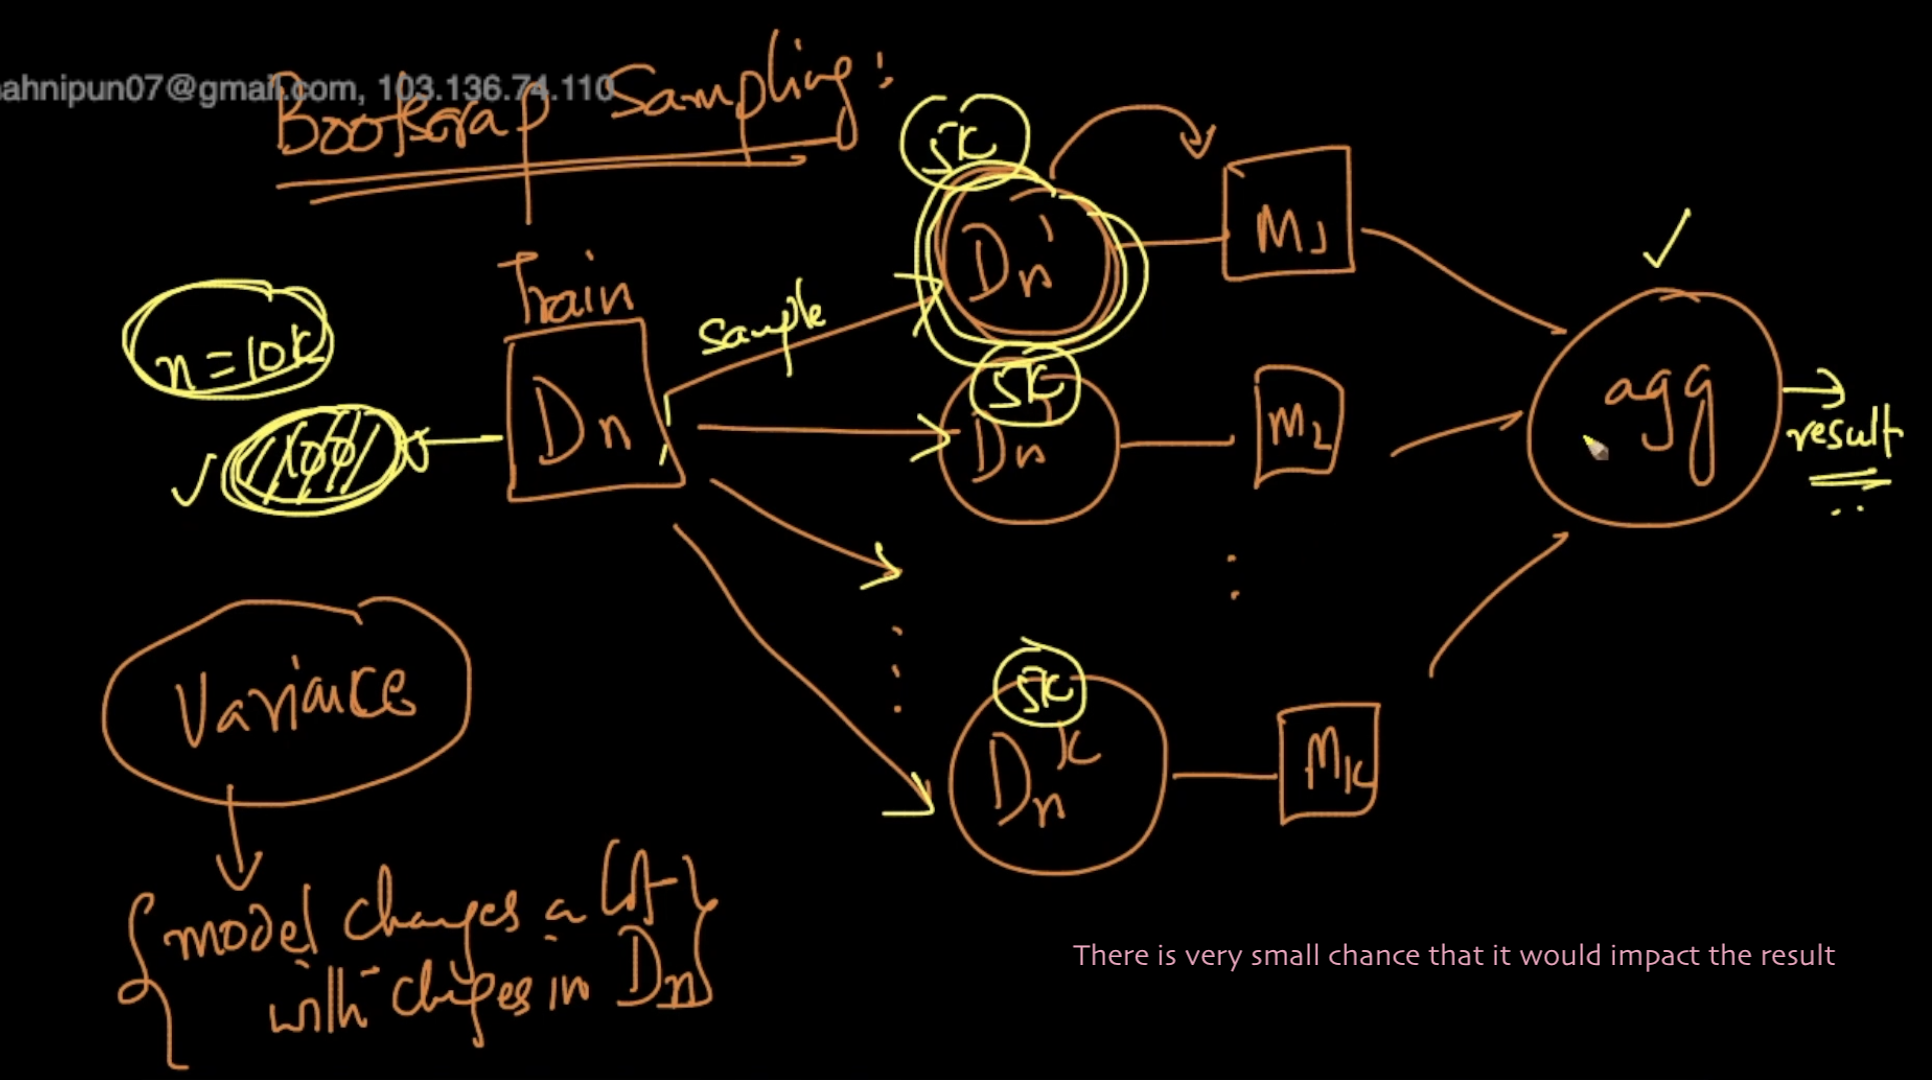 ahnipun07@gmail.com, 103.136.74.110
Bootstrap Sampling:
Train
Dn
n = 10K
100
Sample
5K
Dn 1
M1
5K
Dn
M2
5K
Dn K
MK
agg
result
Variance
model changes a lot
with changes in Dn
There is very small chance that it would impact the result